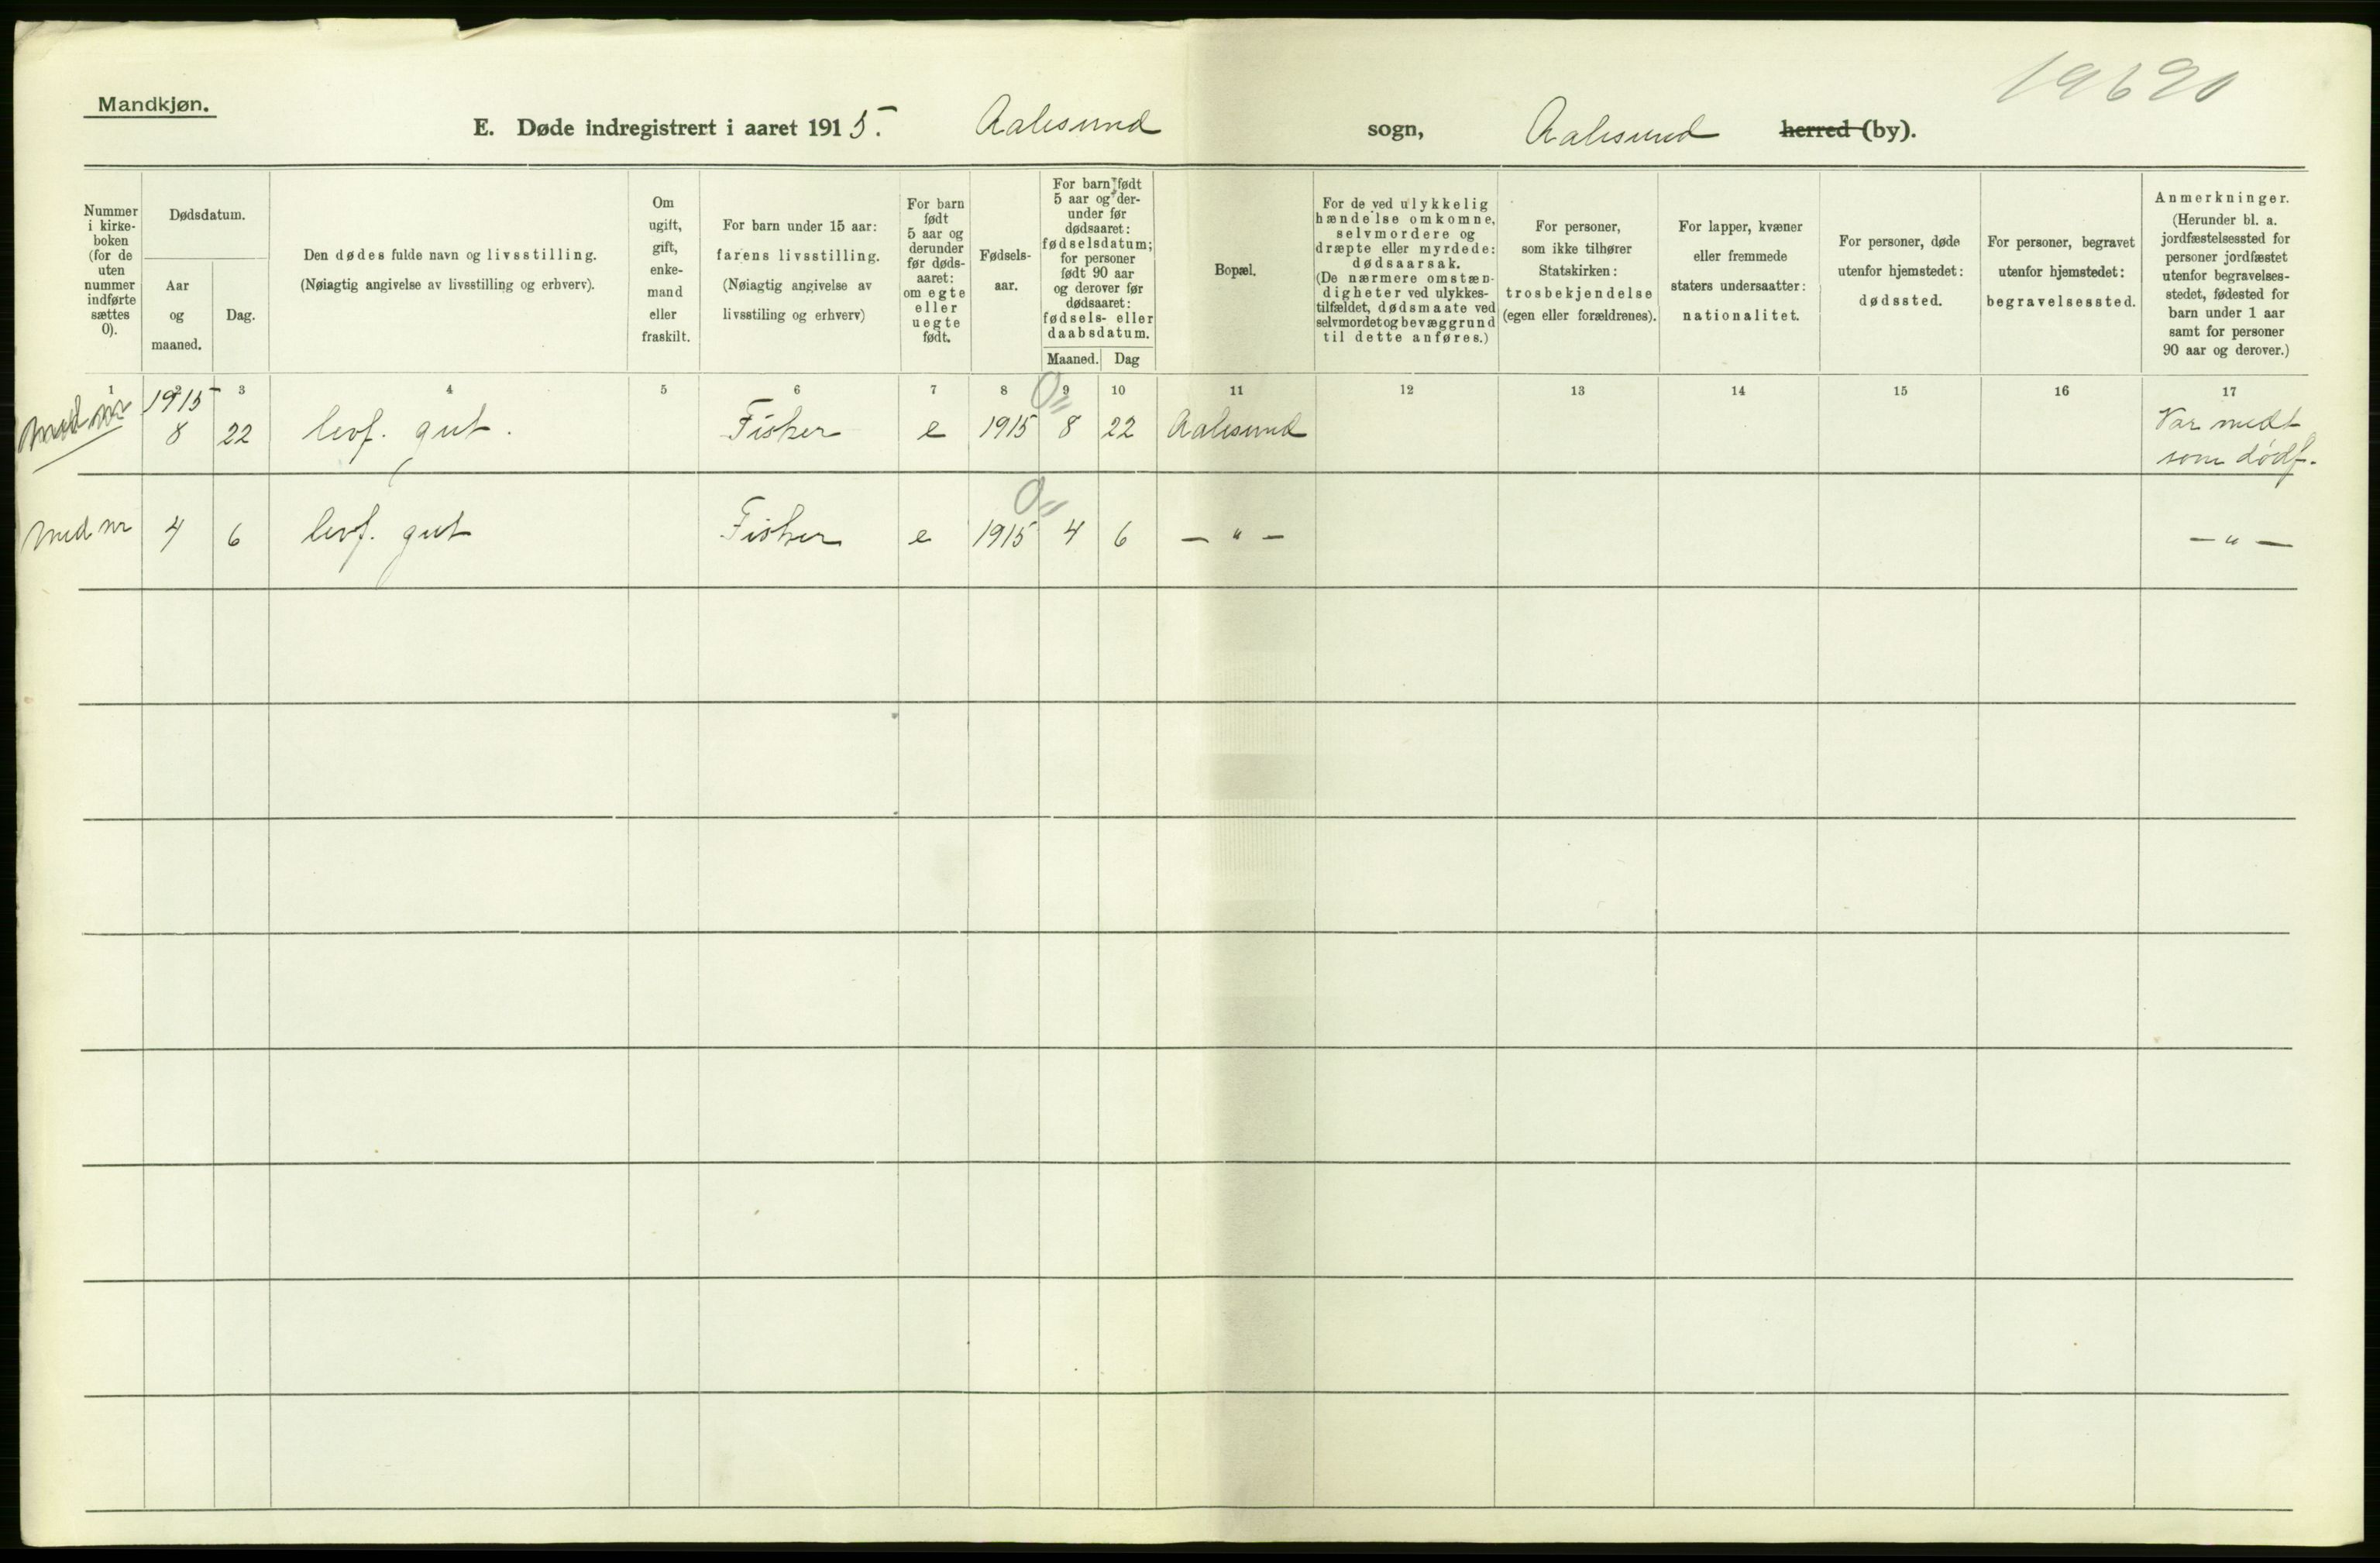 19690
Mandkjøn.
E. Døde indregistrert i aaret 1915. Aalesund sogn, Aalesund herred (by).
Nummer
i kirke-
boken
(for de
uten
nummer
indførte
sættes
0).
Dødsdatum.
Aar
og
maaned.
Dag.
Den dødes fulde navn og livsstilling.
(Nøiagtig angivelse av livsstilling og erhverv).
Om
ugift,
gift,
enke-
mand
eller
fraskilt.
For barn under 15 aar:
farens livsstilling.
(Nøiagtig angivelse av
livsstiling og erhverv)
For barn
født
5 aar og
derunder
før døds-
aaret:
om egte
eller
uegte
født.
Fødsels-
aar.
For barn født
5 aar og der-
under før
dødsaaret:
fødselsdatum;
for personer
født 90 aar
og derover før
dødsaaret:
fødsels- eller
daabsdatum.
Maaned. Dag
Bopæl.
For de ved ulykkelig
hændelse omkomne,
selvmordere og
dræpte eller myrdede:
dødsaarsak.
(De nærmere omstæn-
digheter ved ulykkes-
tilfældet, dødsmaate ved
selvmordet og bevæggrund
til dette anføres.)
For personer,
som ikke tilhører
Statskirken:
trosbekjendelse
(egen eller forældrenes).
For lapper, kvæner
eller fremmede
staters undersaatter:
nationalitet.
For personer, døde
utenfor hjemstedet:
dødssted.
For personer, begravet
utenfor hjemstedet:
begravelsessted.
Anmerkninger.
(Herunder bl. a.
jordfæstelsessted for
personer jordfæstet
utenfor begravelses-
stedet, fødested for
barn under 1 aar
samt for personer
90 aar og derover.)
1 2 3 4 5 6 7 8 9 10 11 12 13 14 15 16 17
1915
8 22 levf. gut. Fisker e 1915 8 22 Aalesund Var medt
som dødf.
4 6 levf. gut Fisker e 1915 4 6 — " — — " —